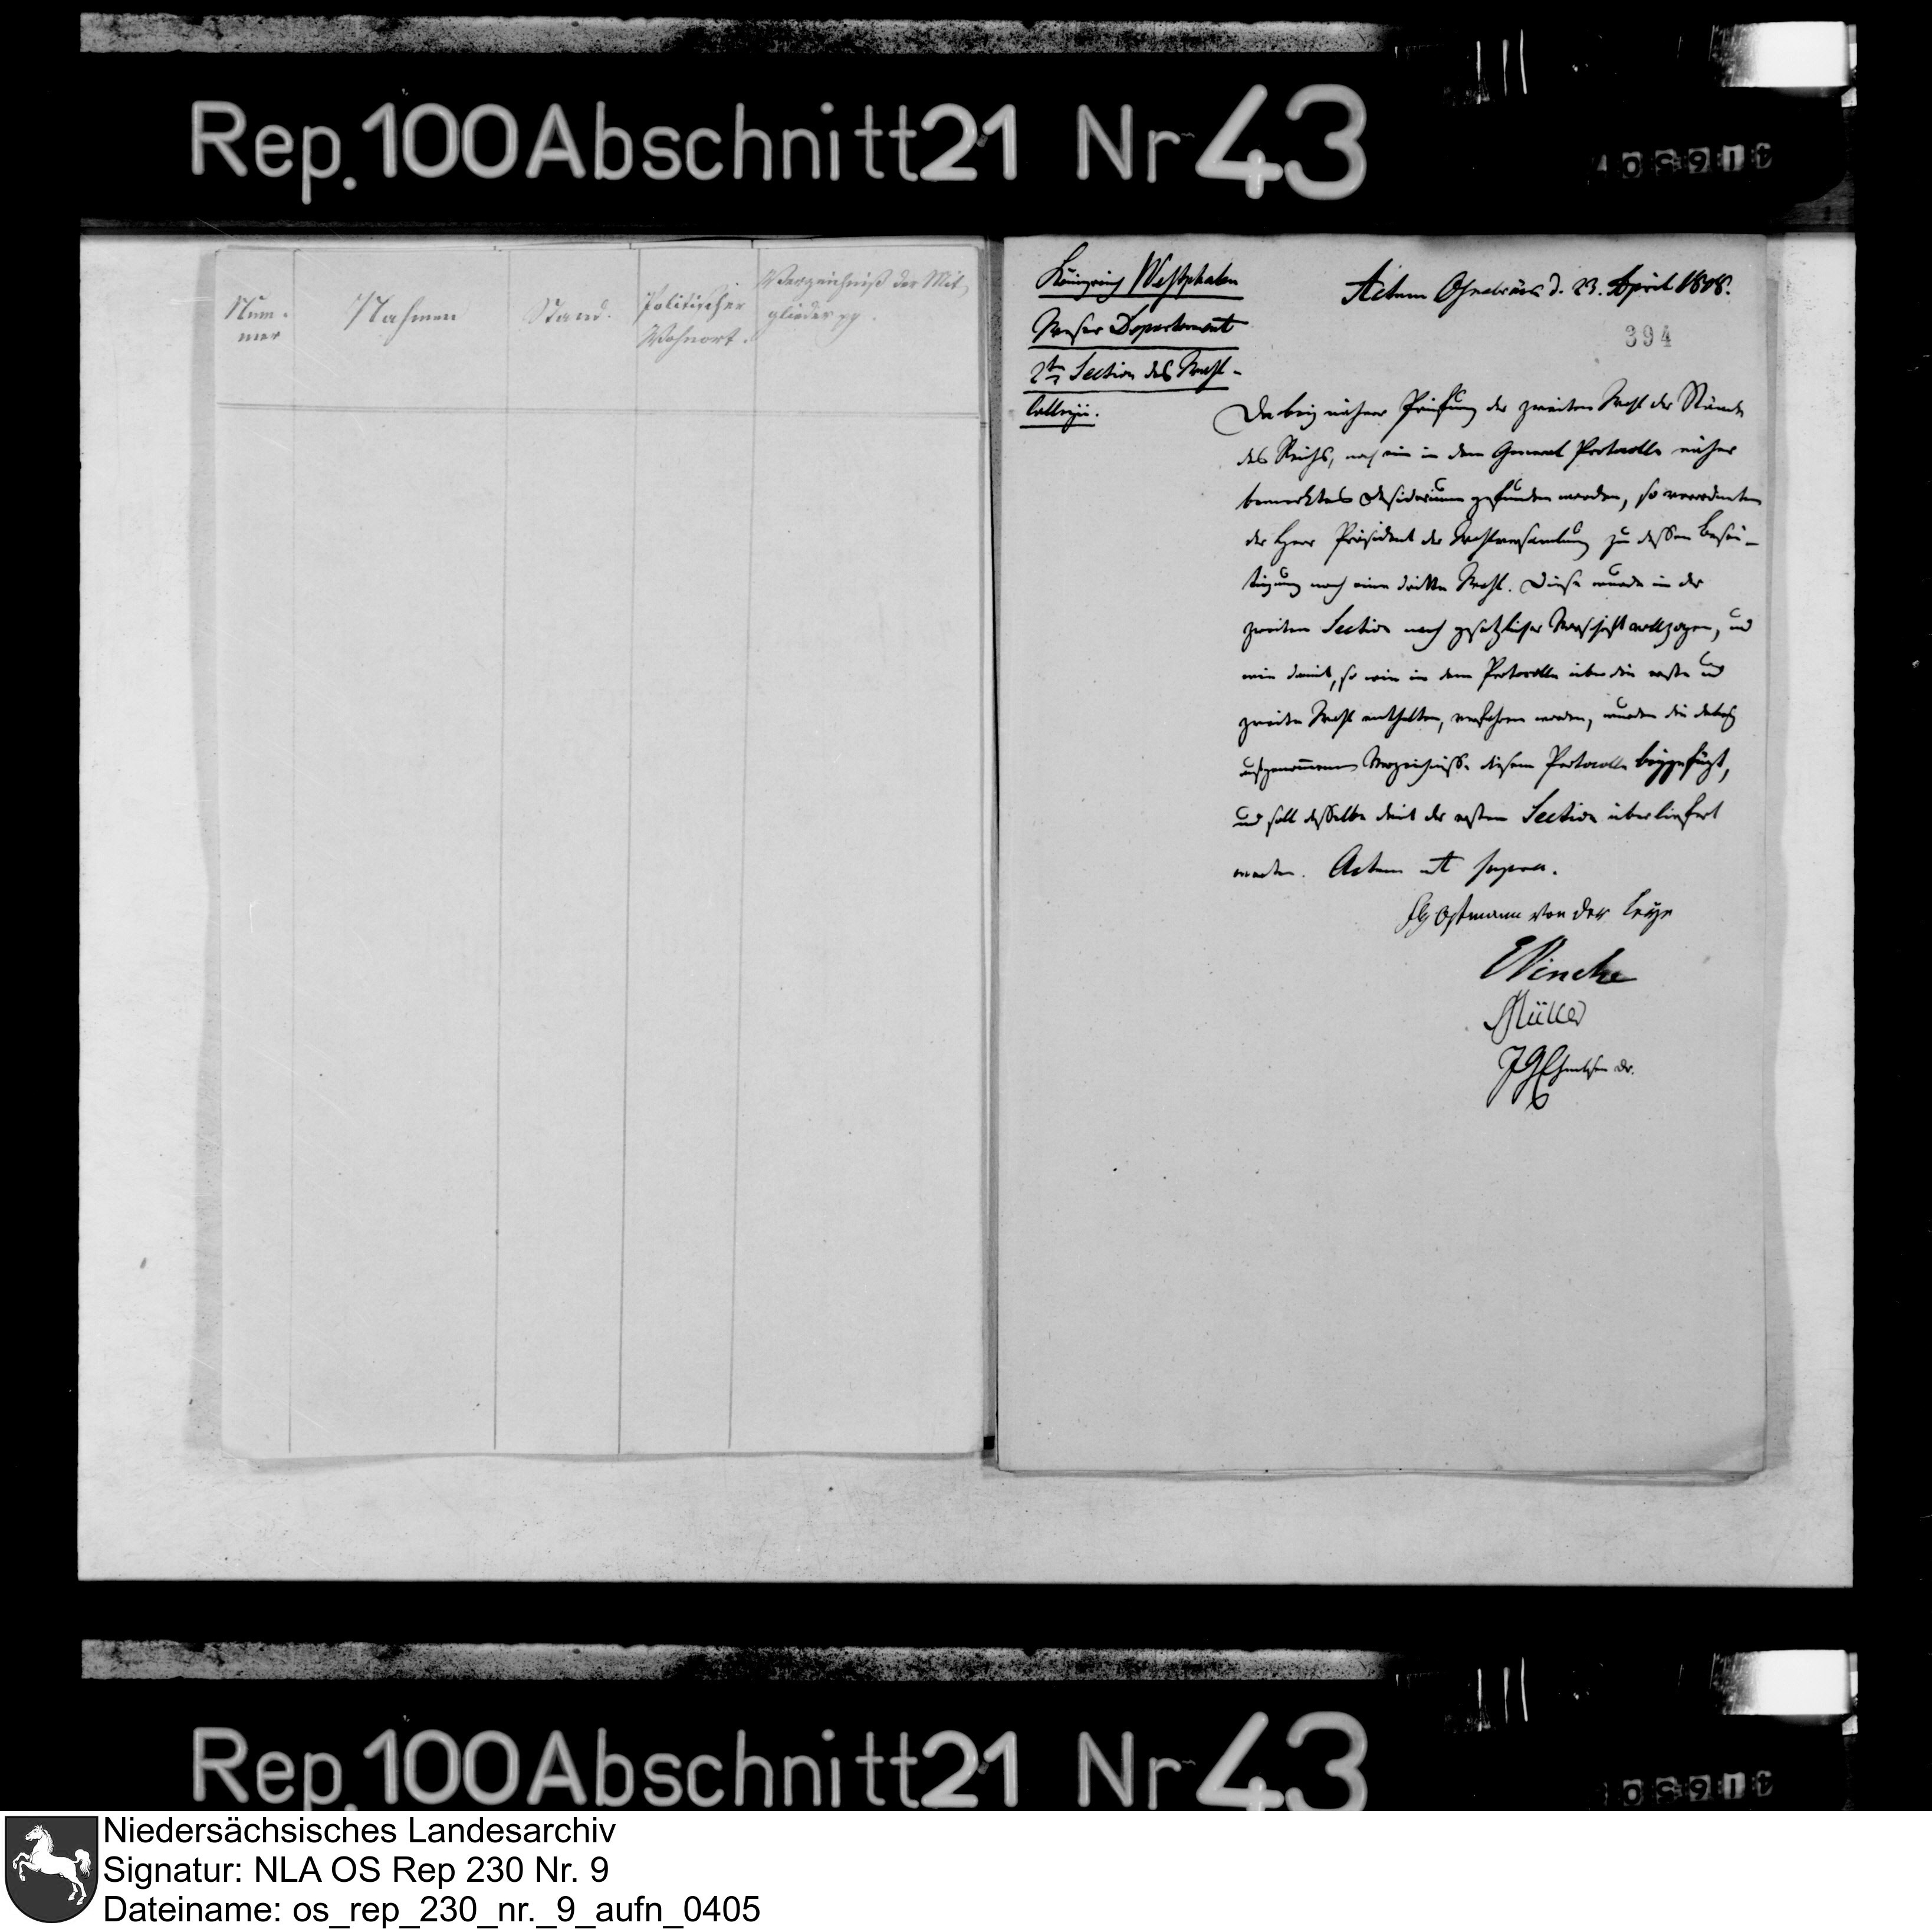 Rep. 100 Abschnitt 21 Nr 43
Num-
mer
Nahmen
Stand.
Politischer
Wohnort.
Verzeichniß der Mit-
glieder pp.
Königreich Westphalen
Weser Departement
2te Section des Wahl-
Collegii.
Actum Osnabrück d. 23. April 1808.
394
Da bey näherer Prüfung der zweiten Wahl der Stände
des Reichs, noch ein in dem General Protocolle näher
bemerktes Desiderium gefunden worden, so verordneten
der Herr Präsident der Wahlversamlung zu dessen Besei-
tigung noch eine dritte Wahl. Diese wurde in der
zweiten Section nach gesetzlicher Vorschrift vollzogen, und
wie damit, so wie in dem Protocolle über die erste und
zweite Wahl enthalten, verfahren worden, wurden die dabey
aufgenommenen Verzeichnisse diesem Protocolle beygefügt,
und soll dasselbe damit der ersten Section überliefert
werden. Actum ut supra.
Ostmann von der Leye
EVincke
Müller
Dr.
Rep. 100 Abschnitt 21 Nr 43
Niedersächsisches Landesarchiv
Signatur: NLA OS Rep 230 Nr. 9
Dateiname: os_rep_230_nr._9_aufn_0405